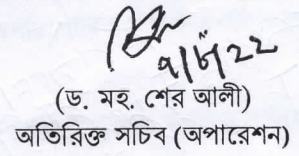 ৭/৮/২২
(ড. মহ. শের আলী)
অতিরিক্ত সচিব (অপারেশন)